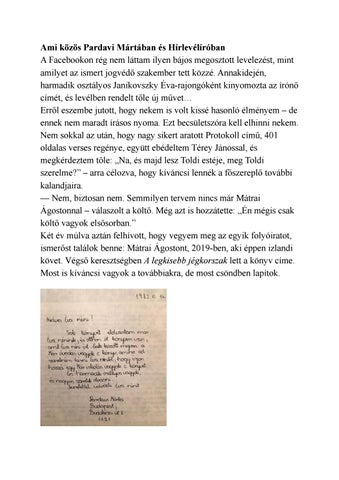 Ami közös Pardavi Mártában és Hírlevélíróban
A Facebookon rég nem láttam ilyen bájos megosztott levelezést, mint
amilyet az ismert jogvédő szakember tett közzé. Annakidején,
harmadik osztályos Janikovszky Éva-rajongóként kinyomozta az írónő
címét, és levélben rendelt tőle új művet…
Erről eszembe jutott, hogy nekem is volt kissé hasonló élményem – de
ennek nem maradt írásos nyoma. Ezt becsületszóra kell elhinni nekem.
Nem sokkal az után, hogy nagy sikert aratott Protokoll című, 401
oldalas verses regénye, együtt ebédeltem Térey Jánossal, és
megkérdeztem tőle: „Na, és majd lesz Toldi estéje, meg Toldi
szerelme?” – arra célozva, hogy kíváncsi lennék a főszereplő további
kalandjaira.
— Nem, biztosan nem. Semmilyen tervem nincs már Mátrai
Ágostonnal – válaszolt a költő. Még azt is hozzátette: „Én mégis csak
költő vagyok elsősorban.”
Két év múlva aztán felhívott, hogy vegyem meg az egyik folyóiratot,
ismerőst találok benne: Mátrai Ágostont, 2019-ben, aki éppen izlandi
követ. Végső keresztségben A legkisebb jégkorszak lett a könyv címe.
Most is kíváncsi vagyok a továbbiakra, de most csöndben lapítok.
Kedves Éva néni!
Sok könyvét elolvastam már
Éva néninek, és otthon öt könyvem van,
Pardavi Márta
Budapest,